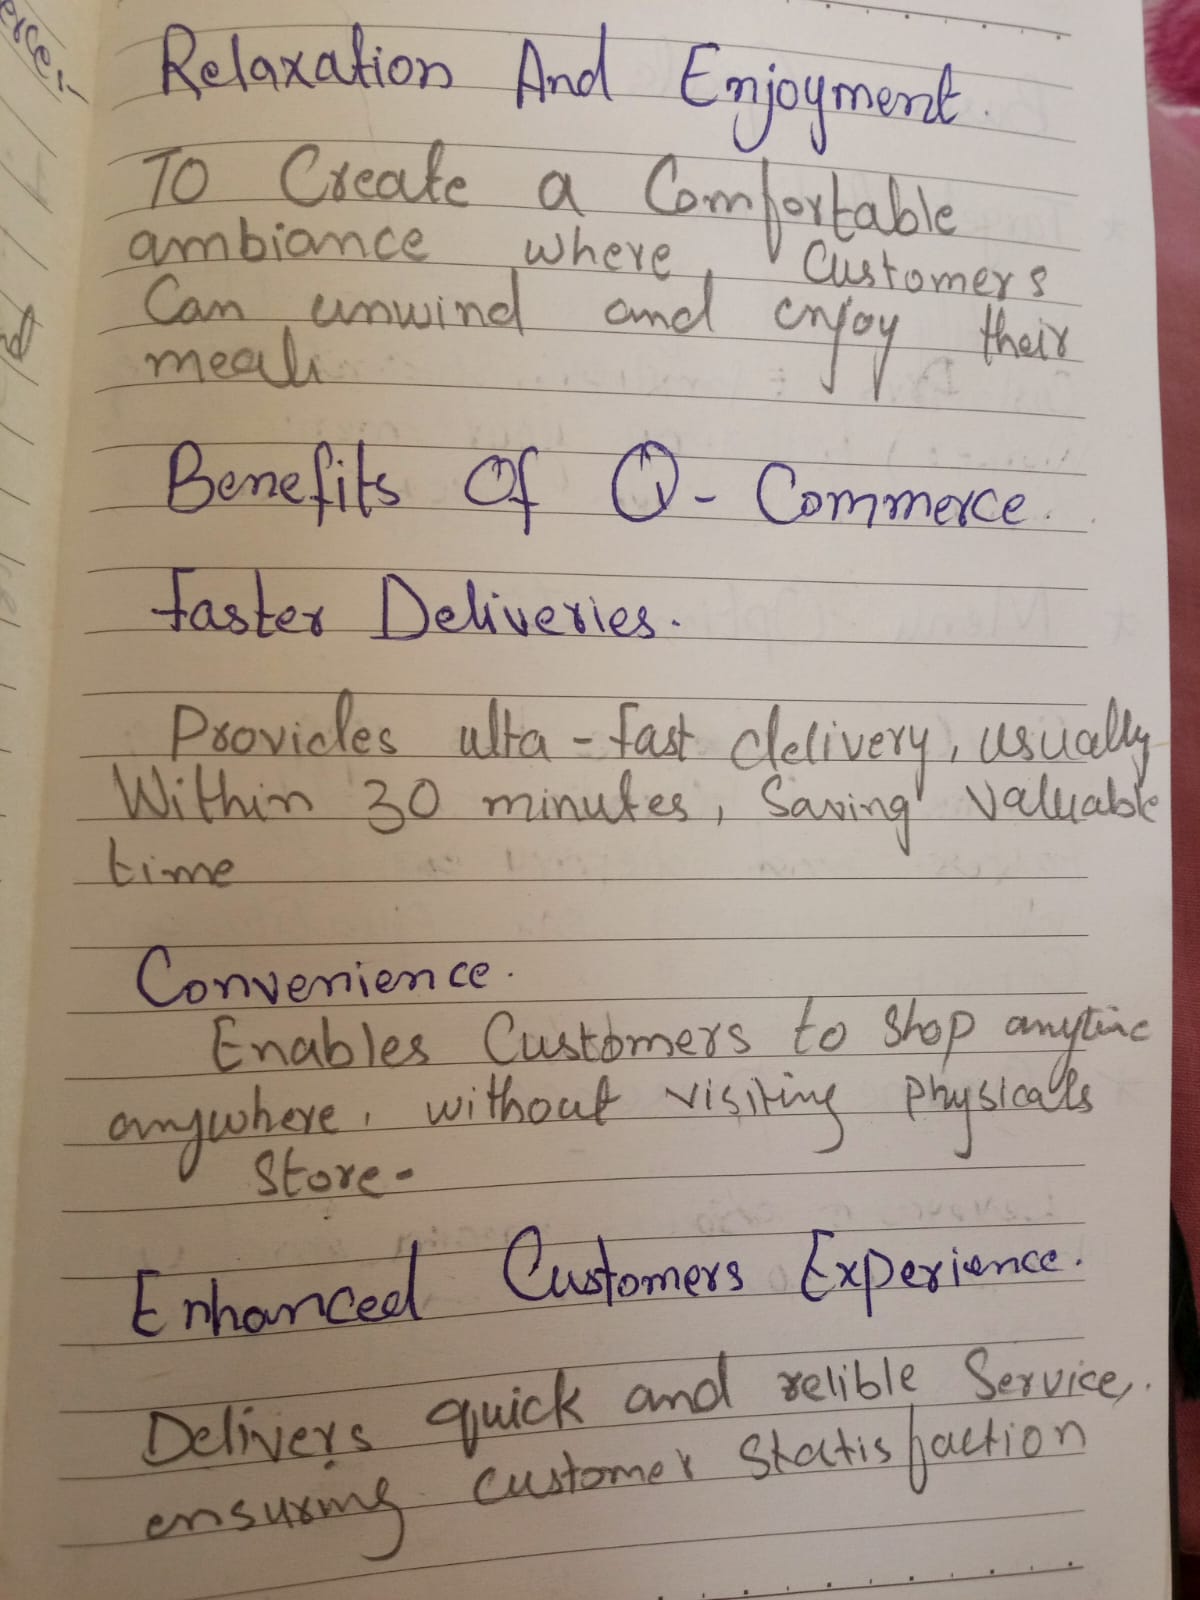 Relaxation And Enjoyment.
To Create a Comfortable
ambiance where, Customers
Can unwind and enjoy their
meals
Benefits Of Q-Commerce.
Faster Deliveries.
Provides ulta-fast delivery, usually
Within 30 minutes, Saving Valuable
time
Convenience.
Enables Customers to Shop anytime
anywhere, without visiting Physicals
Store-
Enhanced Customers Experience.
Delivers quick and relible Service,
ensuring customer Statisfaction